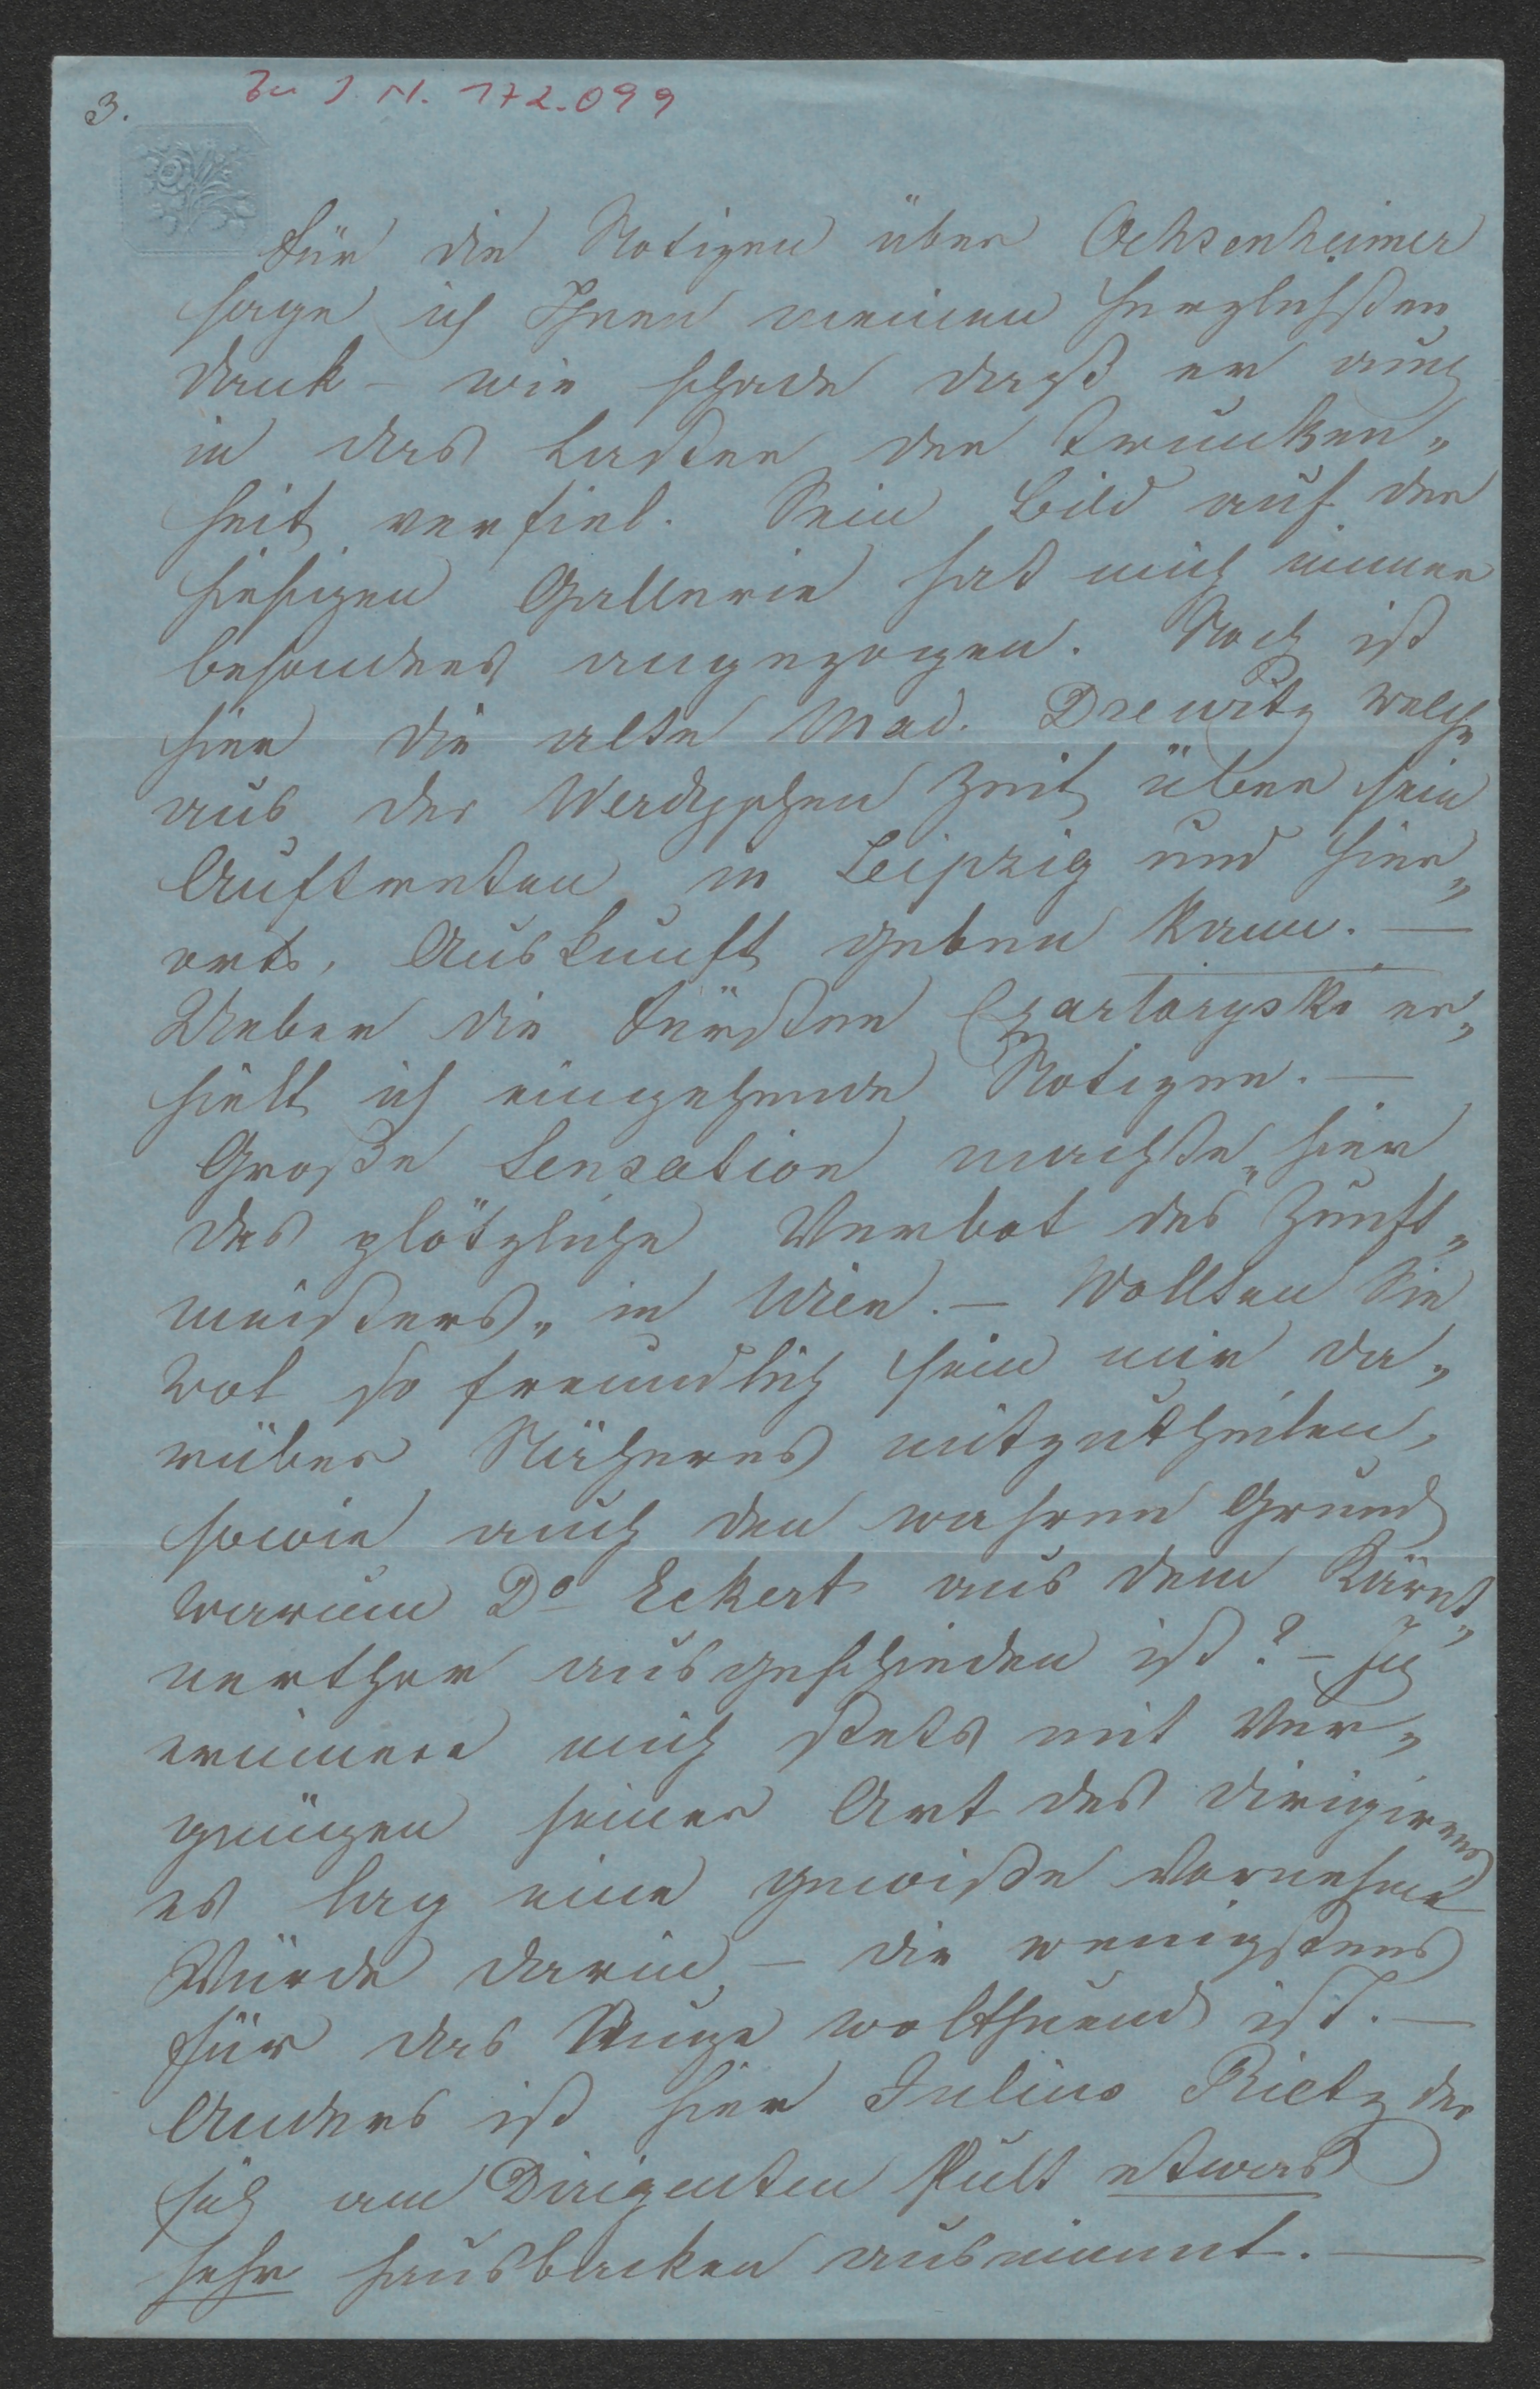 Zu I. N. 172.099
3.
Für die Notizen über Ochsenheimer
sage ich Ihnen meinen herzlichsten
Dank – wie schade daß er auch
in das Laster der Trunken„
heit verfiel. Sein Bild auf der
hiesigen Gallerie hat mich immer
besonders angezogen. Noch ist
hier die alte Mad. Drewitz welche
aus der Zeit über sein
Auftreten in Leipzig und hier„
orts, Auskunft geben kann. —
Ueber die Fürsten Czartoryski er„
hielt ich eingehende Notizen. —
Große Sensation machte hier
das plötzliche Verbot des Zunft„
meisters„ in Wien. – Wollten Sie
wol so freundlich sein mir da„
rüber Näheres mitzutheilen,
sowie auch den wahren Grund
warum Do Eckert aus dem Kärnt„
nerthor ausgeschieden ist? – Ich
erinnere mich stets mit Ver„
gnügen seiner Art des Dirigirens
es lag eine gewisse vornehme
Würde darin – die wenigstens
für das Auge wolthuend ist. —
Anders ist hier Julius Rietz der
sich am Dirigenten Pult etwas
sehr hausbacken ausnimmt. —